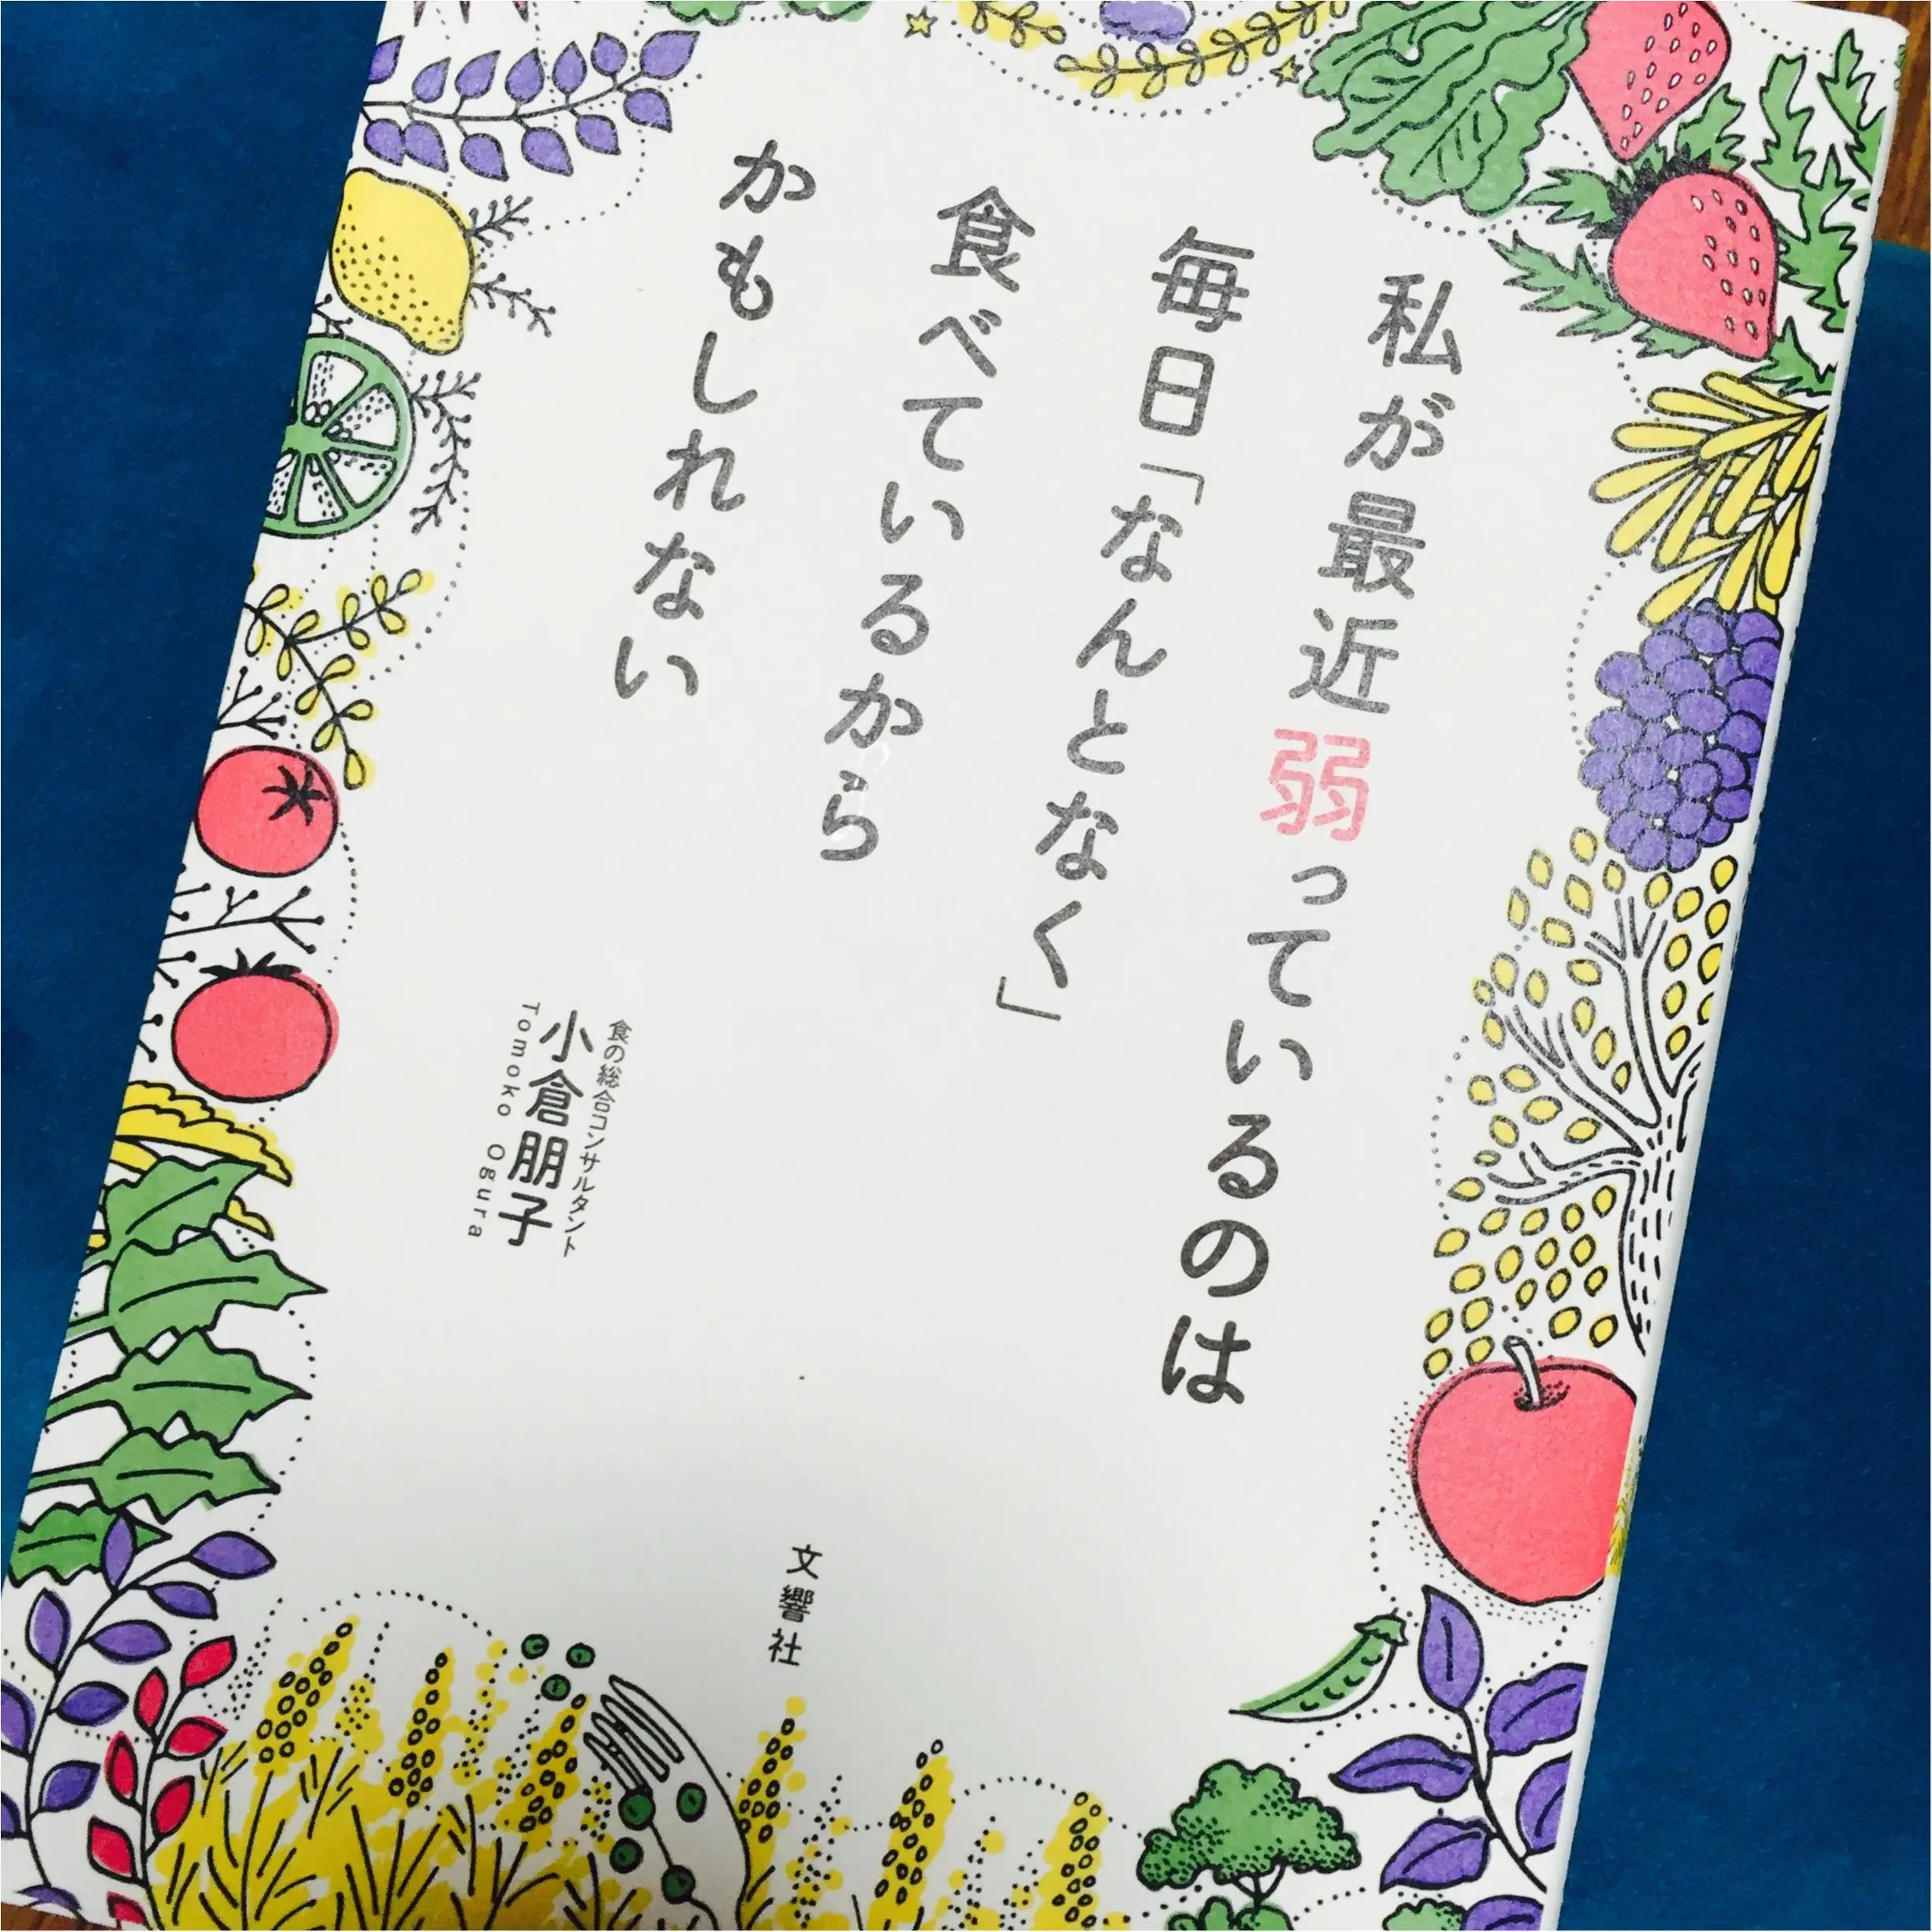 私が最近弱っているのは
毎日「なんとなく」
食べているから
かもしれない
食の総合コンサルタント
小倉朋子
Tomoko Ogura
文響社